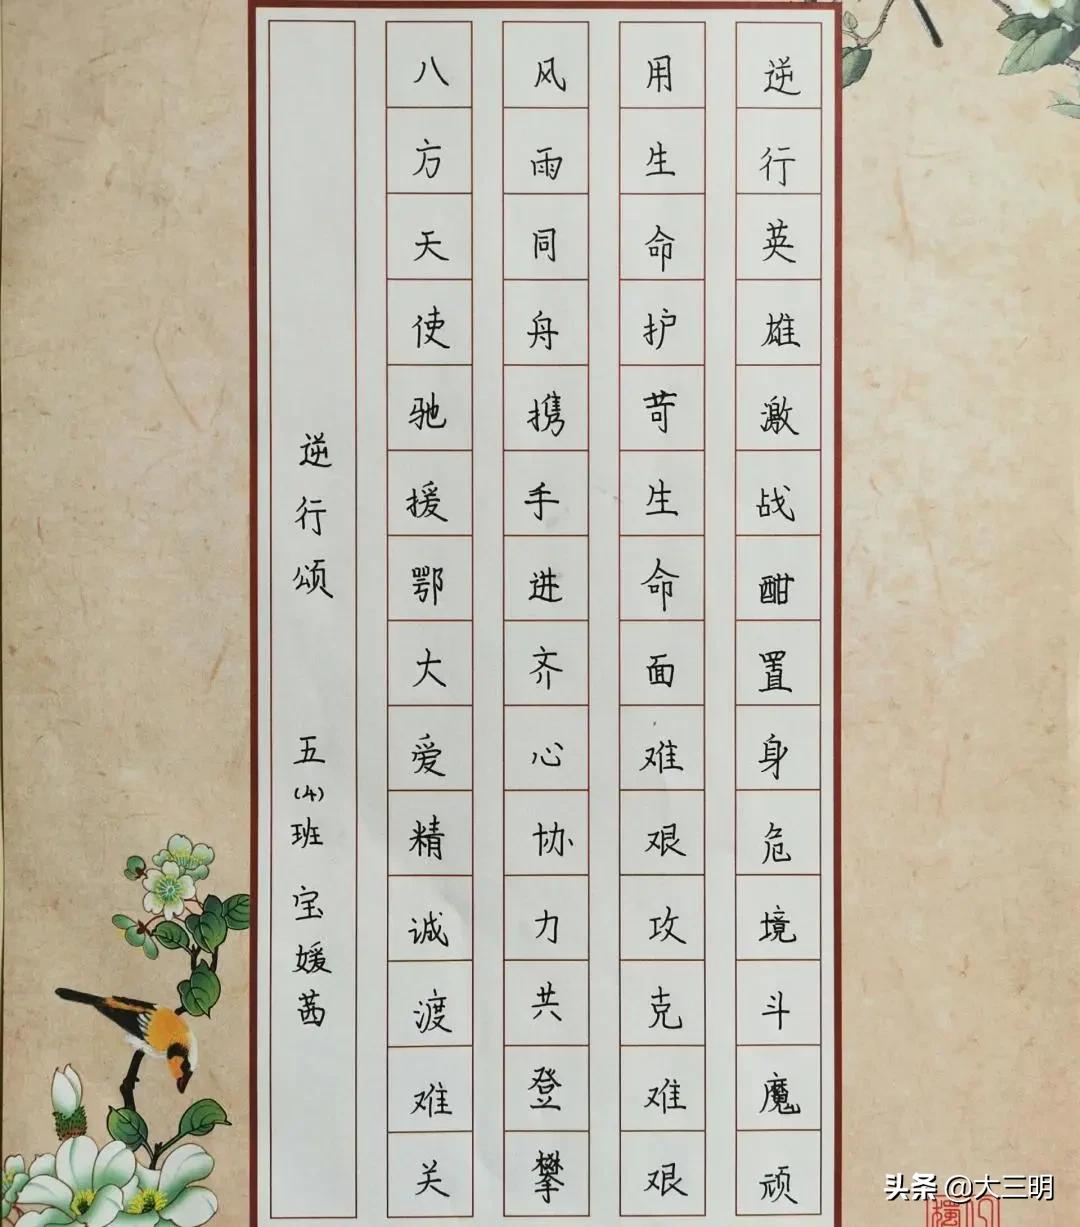 逆行英雄激战酣置身危境斗魔顽
用生命护苛生命面难艰攻克难艰
风雨同舟携手进齐心协力共登攀
八方天使驰援鄂大爱精诚渡难关
逆行颂 五(4)班 宝媛茜
头条 @大三明